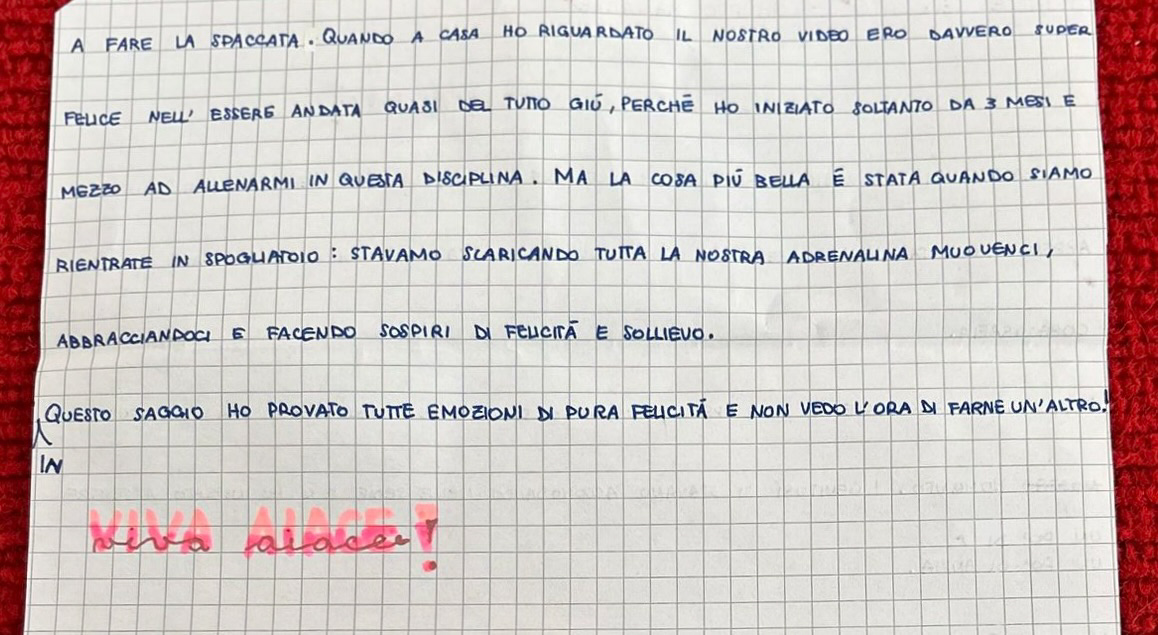 A FARE LA SPACCATA. QUANDO A CASA HO RIGUARDATO IL NOSTRO VIDEO ERO DAVVERO SUPER
FELICE NELL' ESSERE ANDATA QUASI DEL TUTTO GIÚ, PERCHÉ HO INIZIATO SOLTANTO DA 3 MESI E
MEZZO AD ALLENARMI IN QUESTA DISCIPLINA. MA LA COSA PIÚ BELLA É STATA QUANDO SIAMO
RIENTRATE IN SPOGLIATOIO: STAVAMO SCARICANDO TUTTA LA NOSTRA ADRENALINA MUOVENCI,
ABBRACCIANDOCI E FACENDO SOSPIRI DI FELICITÁ E SOLLIEVO.
QUESTO SAGGIO HO PROVATO TUTTE EMOZIONI DI PURA FELICITÁ E NON VEDO L'ORA DI FARNE UN'ALTRO!
IN
VIVA AIACE!
viva aiace!